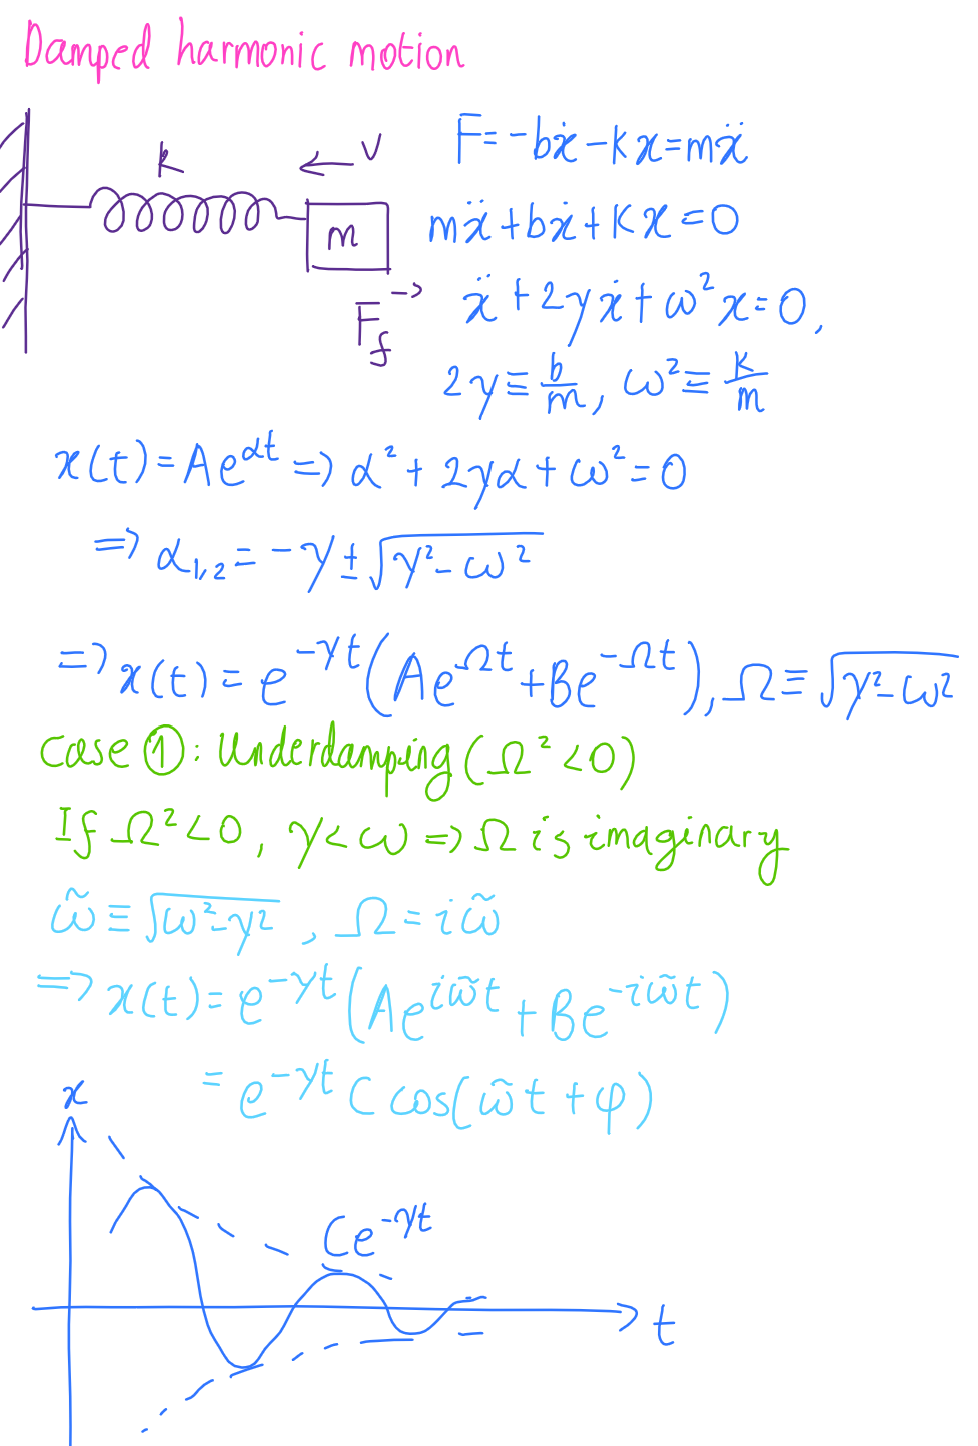 Damped harmonic motion
k
v
m
F_f
F = -bẋ - kx = mẍ
mẍ + bẋ + kx = 0
ẍ + 2γẋ + ω² x = 0,
2γ ≡ b/m, ω² ≡ k/m
x(t) = Ae^{αt} => α² + 2γα + ω² = 0
=> α_{1,2} = -γ ± √(γ² - ω²)
=> x(t) = e^{-γt}(Ae^{Ωt} + Be^{-Ωt}), Ω ≡ √(γ² - ω²)
Case ①: Underdamping (Ω² < 0)
If Ω² < 0, γ < ω => Ω is imaginary
ω̃ ≡ √(ω² - γ²), Ω = iω̃
=> x(t) = e^{-γt}(Ae^{iω̃t} + Be^{-iω̃t})
= e^{-γt} C cos(ω̃t + φ)
x
Ce^{-γt}
t